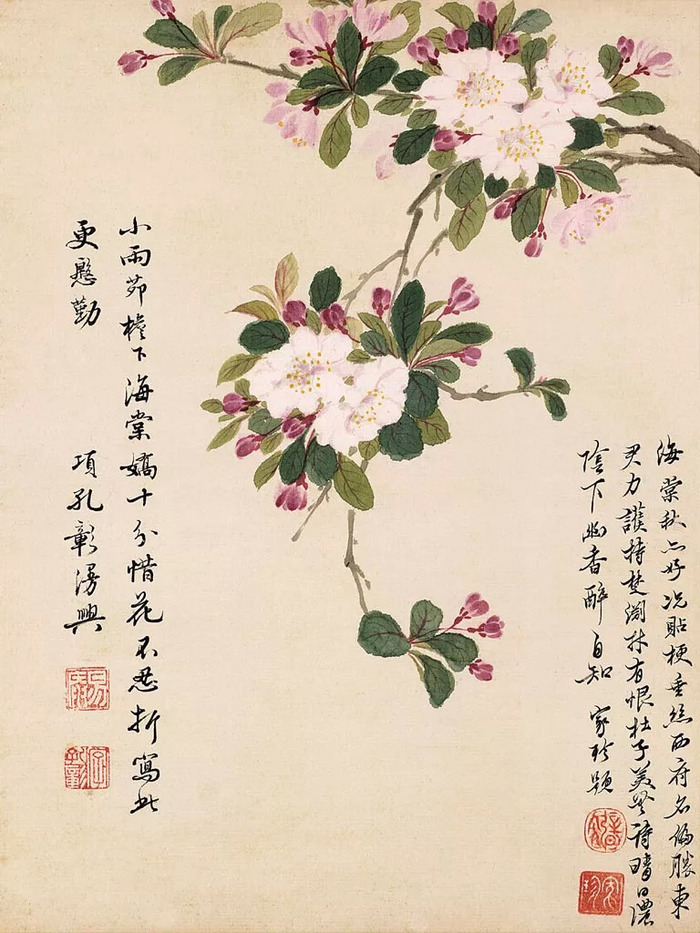 海棠秋亦好況貼梗垂絲西府名偏勝東
君力護持楚淵材有恨杜子美無詩晴日濃
陰下幽香醉自知 家珍題
小雨茆檐下海棠嬌十分惜花不忍折寫此
更慇勤 項孔彰漫興